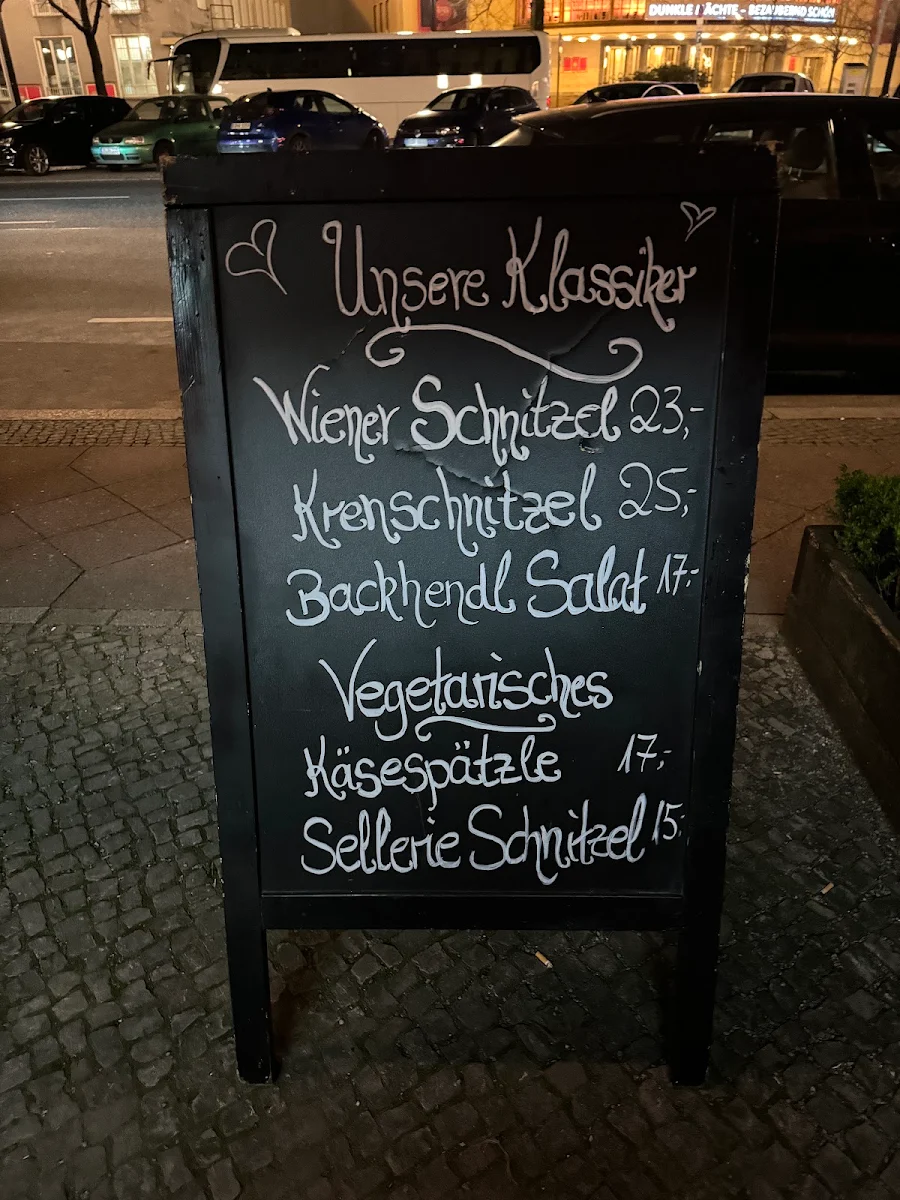 DUNKLE NÄCHTE - BEZAUBERND SCHÖN
Unsere Klassiker
Wiener Schnitzel 23,-
Krenschnitzel 25,-
Backhendl Salat 17,-
Vegetarisches
Käsespätzle 17,-
Sellerie Schnitzel 15,